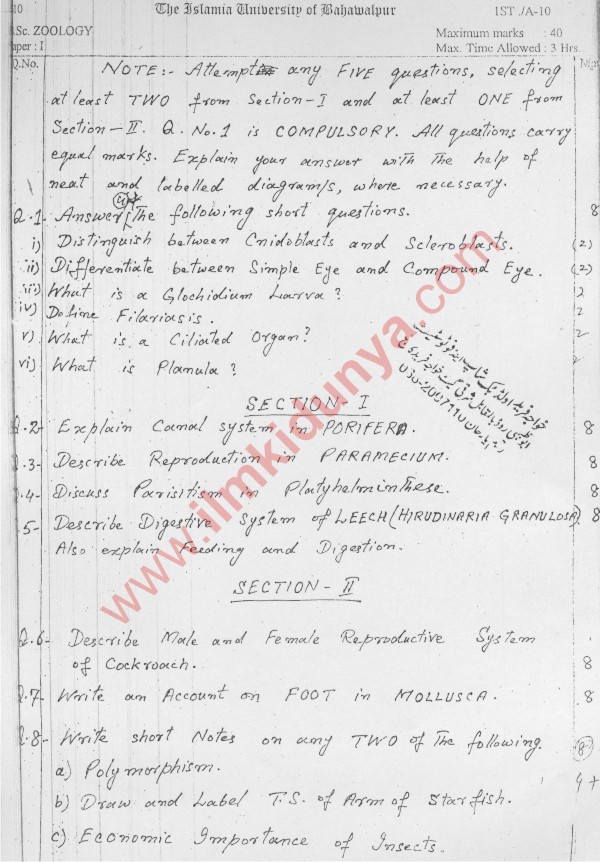 10 The Islamia University of Bahawalpur 1ST ./A-10
.Sc. ZOOLOGY Maximum marks : 40
aper : I Max. Time Allowed : 3 Hrs.
Q.No.
NOTE:- Attempt any FIVE questions, selecting
at least TWO from Section-I and at least ONE from
Section-II. Q. No.1 is COMPULSORY. All questions carry
equal marks. Explain your answer with the help of
neat and labelled diagram/s, where necessary.
Q.1- Answer the following short questions. 8
i) Distinguish between Cnidoblasts and Scleroblasts. (2)
ii) Differentiate between Simple Eye and Compound Eye. (2)
iii) What is a Glochidium Larva? 2
iv) Define Filariasis. 2
v) What is a Ciliated Organ? 2
vi) What is Planula? 2
SECTION-I
Q.2- Explain Canal system in PORIFERA. 8
Q.3- Describe Reproduction in PARAMECIUM. 8
.4- Discuss Parisitism in Platyhelminthese. 8
.5- Describe Digestive System of LEECH (HIRUDINARIA GRANULOSA) 8
Also explain Feeding and Digestion.
SECTION-II
Q.6- Describe Male and Female Reproductive System
of Cockroach. 8
Q.7- Write an Account on FOOT in MOLLUSCA. 8
Q.8- Write short Notes on any TWO of the following. 8
a) Polymorphism. 4+
b) Draw and Label T.S. of Arm of Starfish.
c) Economic Importance of Insects.
www.ilmkidunya.com